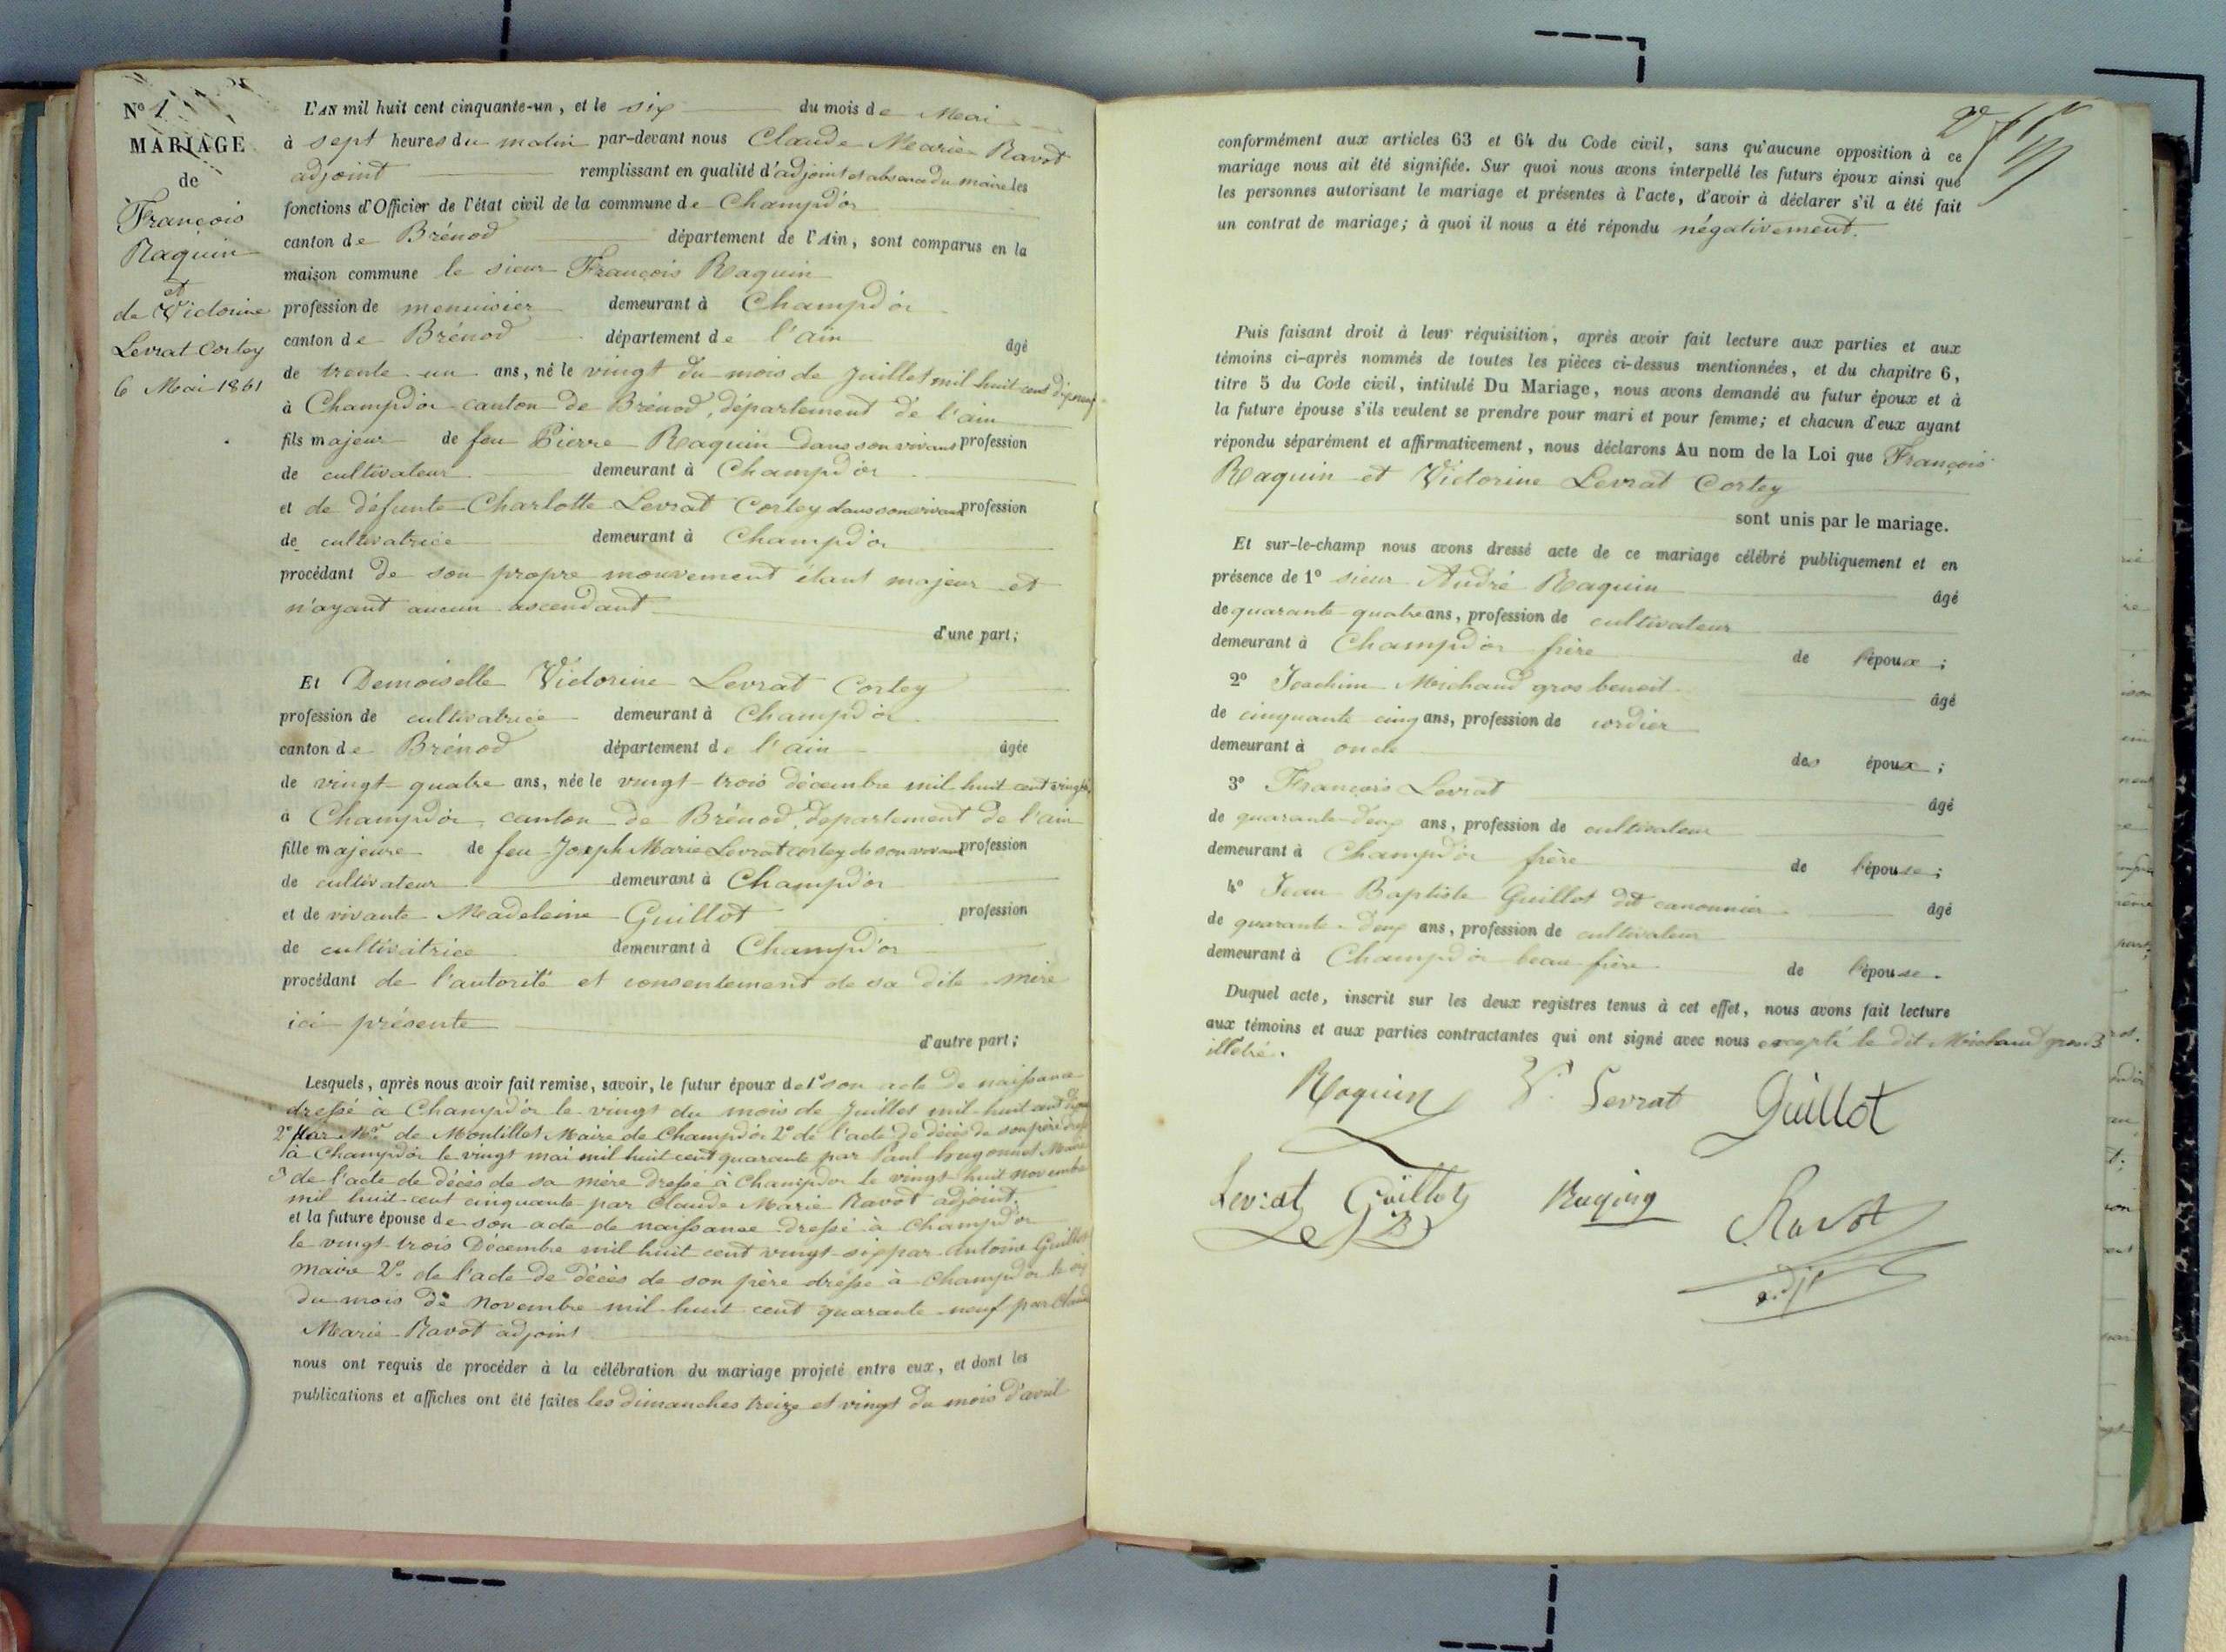 Nº 1
MARIAGE
de
François
Raquin
et
de Victorine
Levrat Cortey
6 Mai 1861
L'AN mil huit cent cinquante-un, et le six du mois de Mai
à sept heures du matin par-devant nous Claude Marie Ravot
adjoint remplissant en qualité d'adjoint et absence du maire les
fonctions d'Officier de l'état civil de la commune de Champd'or
canton de Brénod département de l'Ain, sont comparus en la
maison commune le sieur François Raquin
profession de menuisier demeurant à Champd'or
canton de Brénod département de l'ain âgé
de trente un ans, né le vingt du mois de Juillet mil huit cent dix neuf
à Champd'or canton de Brénod, département de l'ain
fils majeur de feu Pierre Raquin dans son vivant profession
de cultivateur demeurant à Champd'or
et de défunte Charlotte Levrat Cortey dans son vivant profession
de cultivatrice demeurant à Champd'or
procédant de son propre mouvement étant majeur et
n'ayant aucun ascendant
d'une part;
Et Demoiselle Victorine Levrat Cortey
profession de cultivatrice demeurant à Champd'or
canton de Brénod département de l'ain âgée
de vingt quatre ans, née le vingt trois décembre mil huit cent vingt
à Champd'or, canton de Brénod, departement de l'ain
fille majeure de feu Joseph Marie Levrat cortey de son vivant profession
de cultivateur demeurant à Champd'or
et de vivante Madeleine Guillot profession
de cultivatrice demeurant à Champd'or
procédant de l'autorité et consentement de sa dite mère
ici présente
d'autre part;
Lesquels, après nous avoir fait remise, savoir, le futur époux de 1º son acte de naissance
dressé à Champd'or le vingt du mois de Juillet mil huit cent
2º par Mr. de Montillet Maire de Champd'or 2º de l'acte de décès de son père dressé
à Champd'or le vingt mai mil huit cent quarante par Paul hugonnet Maire
3 de l'acte de décès de sa mère dressé à Champd'or le vingt huit novembre
mil huit cent cinquante par Claude Marie Ravot adjoint.
et la future épouse de son acte de naissance dressé à Champd'or
le vingt trois Décembre mil huit cent vingt six par antoine Guillot
maire 2º. de l'acte de décès de son père dressé à Champd'or le
du mois de Novembre mil huit cent quarante neuf par Claude
Marie Ravot adjoint
nous ont requis de procéder à la célébration du mariage projeté entre eux, et dont les
publications et affiches ont été faites les dimanches treize et vingt du mois d'avril
conformément aux articles 63 et 64 du Code civil, sans qu'aucune opposition à ce
mariage nous ait été signifiée. Sur quoi nous avons interpellé les futurs époux ainsi que
les personnes autorisant le mariage et présentes à l'acte, d'avoir à déclarer s'il a été fait
un contrat de mariage; à quoi il nous a été répondu négativement.
Puis faisant droit à leur réquisition, après avoir fait lecture aux parties et aux
témoins ci-après nommés de toutes les pièces ci-dessus mentionnées, et du chapitre 6,
titre 5 du Code civil, intitulé Du Mariage, nous avons demandé au futur époux et à
la future épouse s'ils veulent se prendre pour mari et pour femme; et chacun d'eux ayant
répondu séparément et affirmativement, nous déclarons Au nom de la Loi que François
Raquin et Victorine Levrat Cortey
sont unis par le mariage.
Et sur-le-champ nous avons dressé acte de ce mariage célébré publiquement et en
présence de 1º sieur André Raquin âgé
de quarante quatre ans, profession de cultivateur
demeurant à Champd'or frère de l'époux;
2º Joachim Michaud gros benoit âgé
de cinquante cinq ans, profession de cordier
demeurant à oncle des époux;
3º François Levrat âgé
de quarante deux ans, profession de cultivateur
demeurant à Champd'or frère de l'épouse;
4º Jean Baptiste Guillot dit canonnier âgé
de quarante deux ans, profession de cultivateur
demeurant à Champd'or beau frère de l'épouse.
Duquel acte, inscrit sur les deux registres tenus à cet effet, nous avons fait lecture
aux témoins et aux parties contractantes qui ont signé avec nous excepté le dit Michaud gros B
illétré.
Raquin V. Levrat Guillot
Levrat Guillot JB Raquin Ravot
adjt